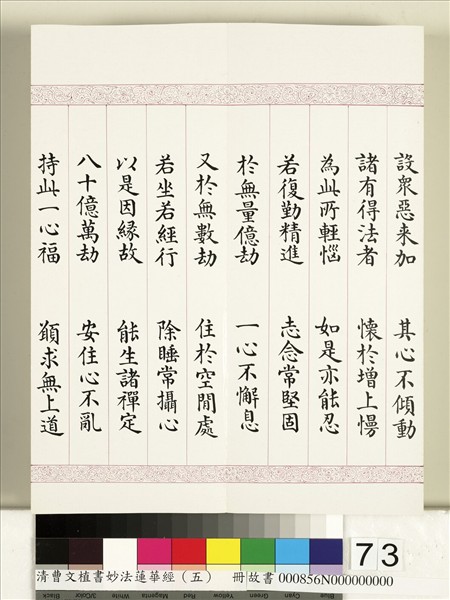 設眾惡来加 其心不傾動
諸有得法者 懷於增上慢
為此所輕惱 如是亦能忍
若復勤精進 志念常堅固
於無量億劫 一心不懈息
又於無數劫 住於空閒處
若坐若經行 除睡常攝心
以是因緣故 能生諸禪定
八十億萬劫 安住心不亂
持此一心福 願求無上道
73
清曹文埴書妙法蓮華經（五） 冊故書 000856N000000000
Black 3/Color White Magenta Red Yellow Green Cyan Blue